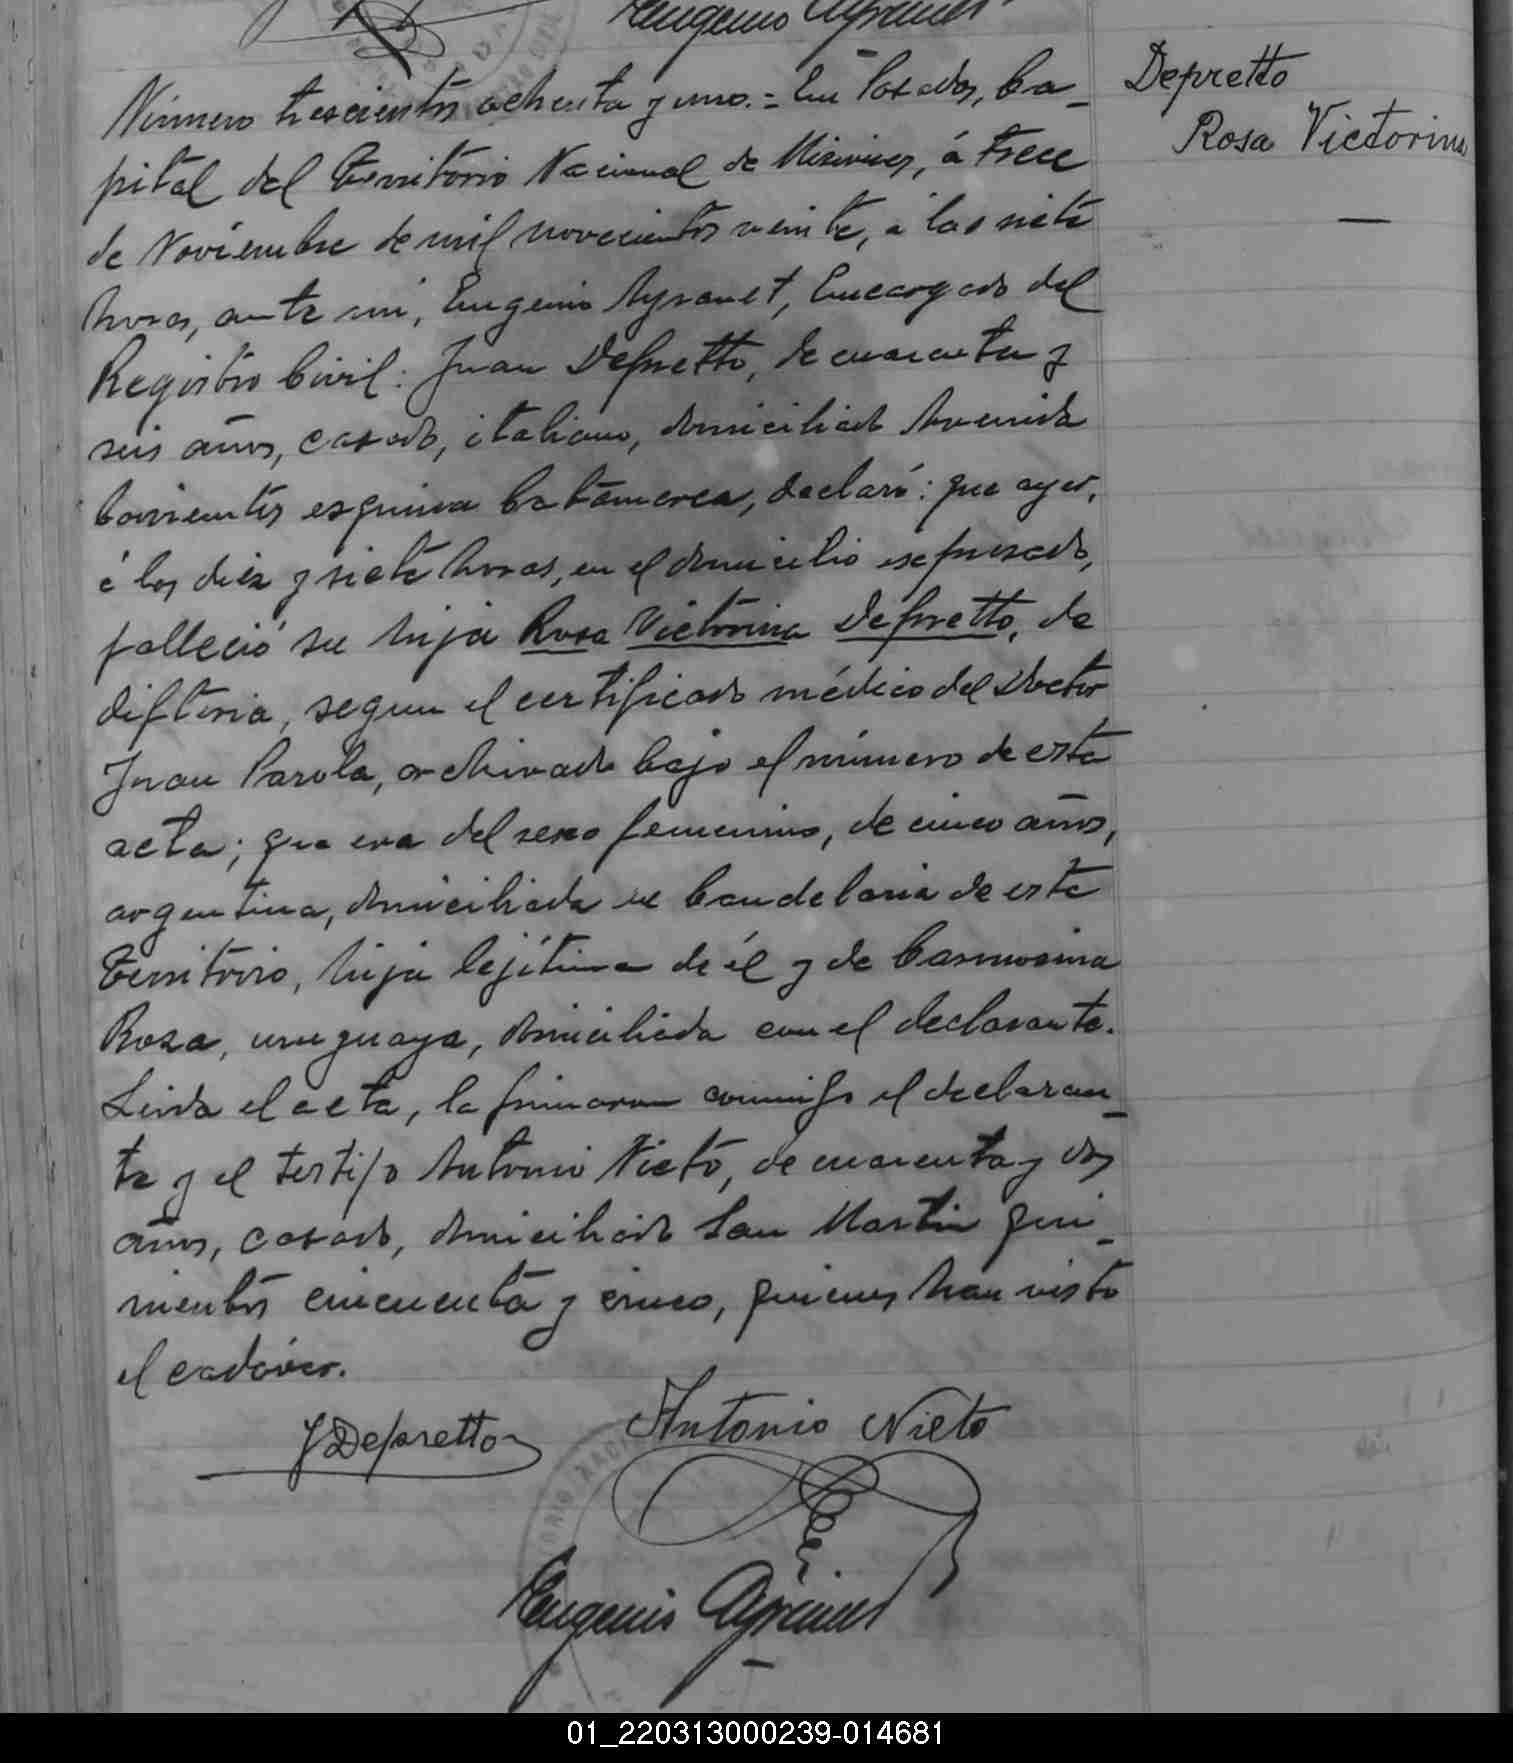 Eugenio Ayranet
Depretto
Rosa Victorina
Número trescientos ochenta y uno.= En Posadas, Ca-
pital del Territorio Nacional de Misiones, á trece
de Noviembre de mil novecientos veinte, á las siete
horas, ante mí, Eugenio Ayranet, Encargado del
Registro Civil: Juan Depretto, de cuarenta y
seis años, casado, italiano, domiciliado Avenida
Corrientes esquina Catamarca, declaró: que ayer,
á las diez y siete horas, en el domicilio expresado,
falleció su hija Rosa Victorina Depretto, de
difteria, segun el certificado médico del Doctor
Juan Parola, archivado bajo el número de esta
acta; que era del sexo femenino, de cinco años,
argentina, domiciliada en Candelaria de este
Territorio, hija lejítima de él y de
Rosa, uruguaya, domiciliada con el declarante.
Leida el acta, la firmaron conmigo el declaran-
te y el testigo Antonio Nieto, de cuarenta y dos
años, casado, domiciliado San Martin quin-
nientos cincuenta y cinco, quienes han visto
el cadáver.
J Depretto
Antonio Nieto
Eugenio Ayranet
01_220313000239-014681